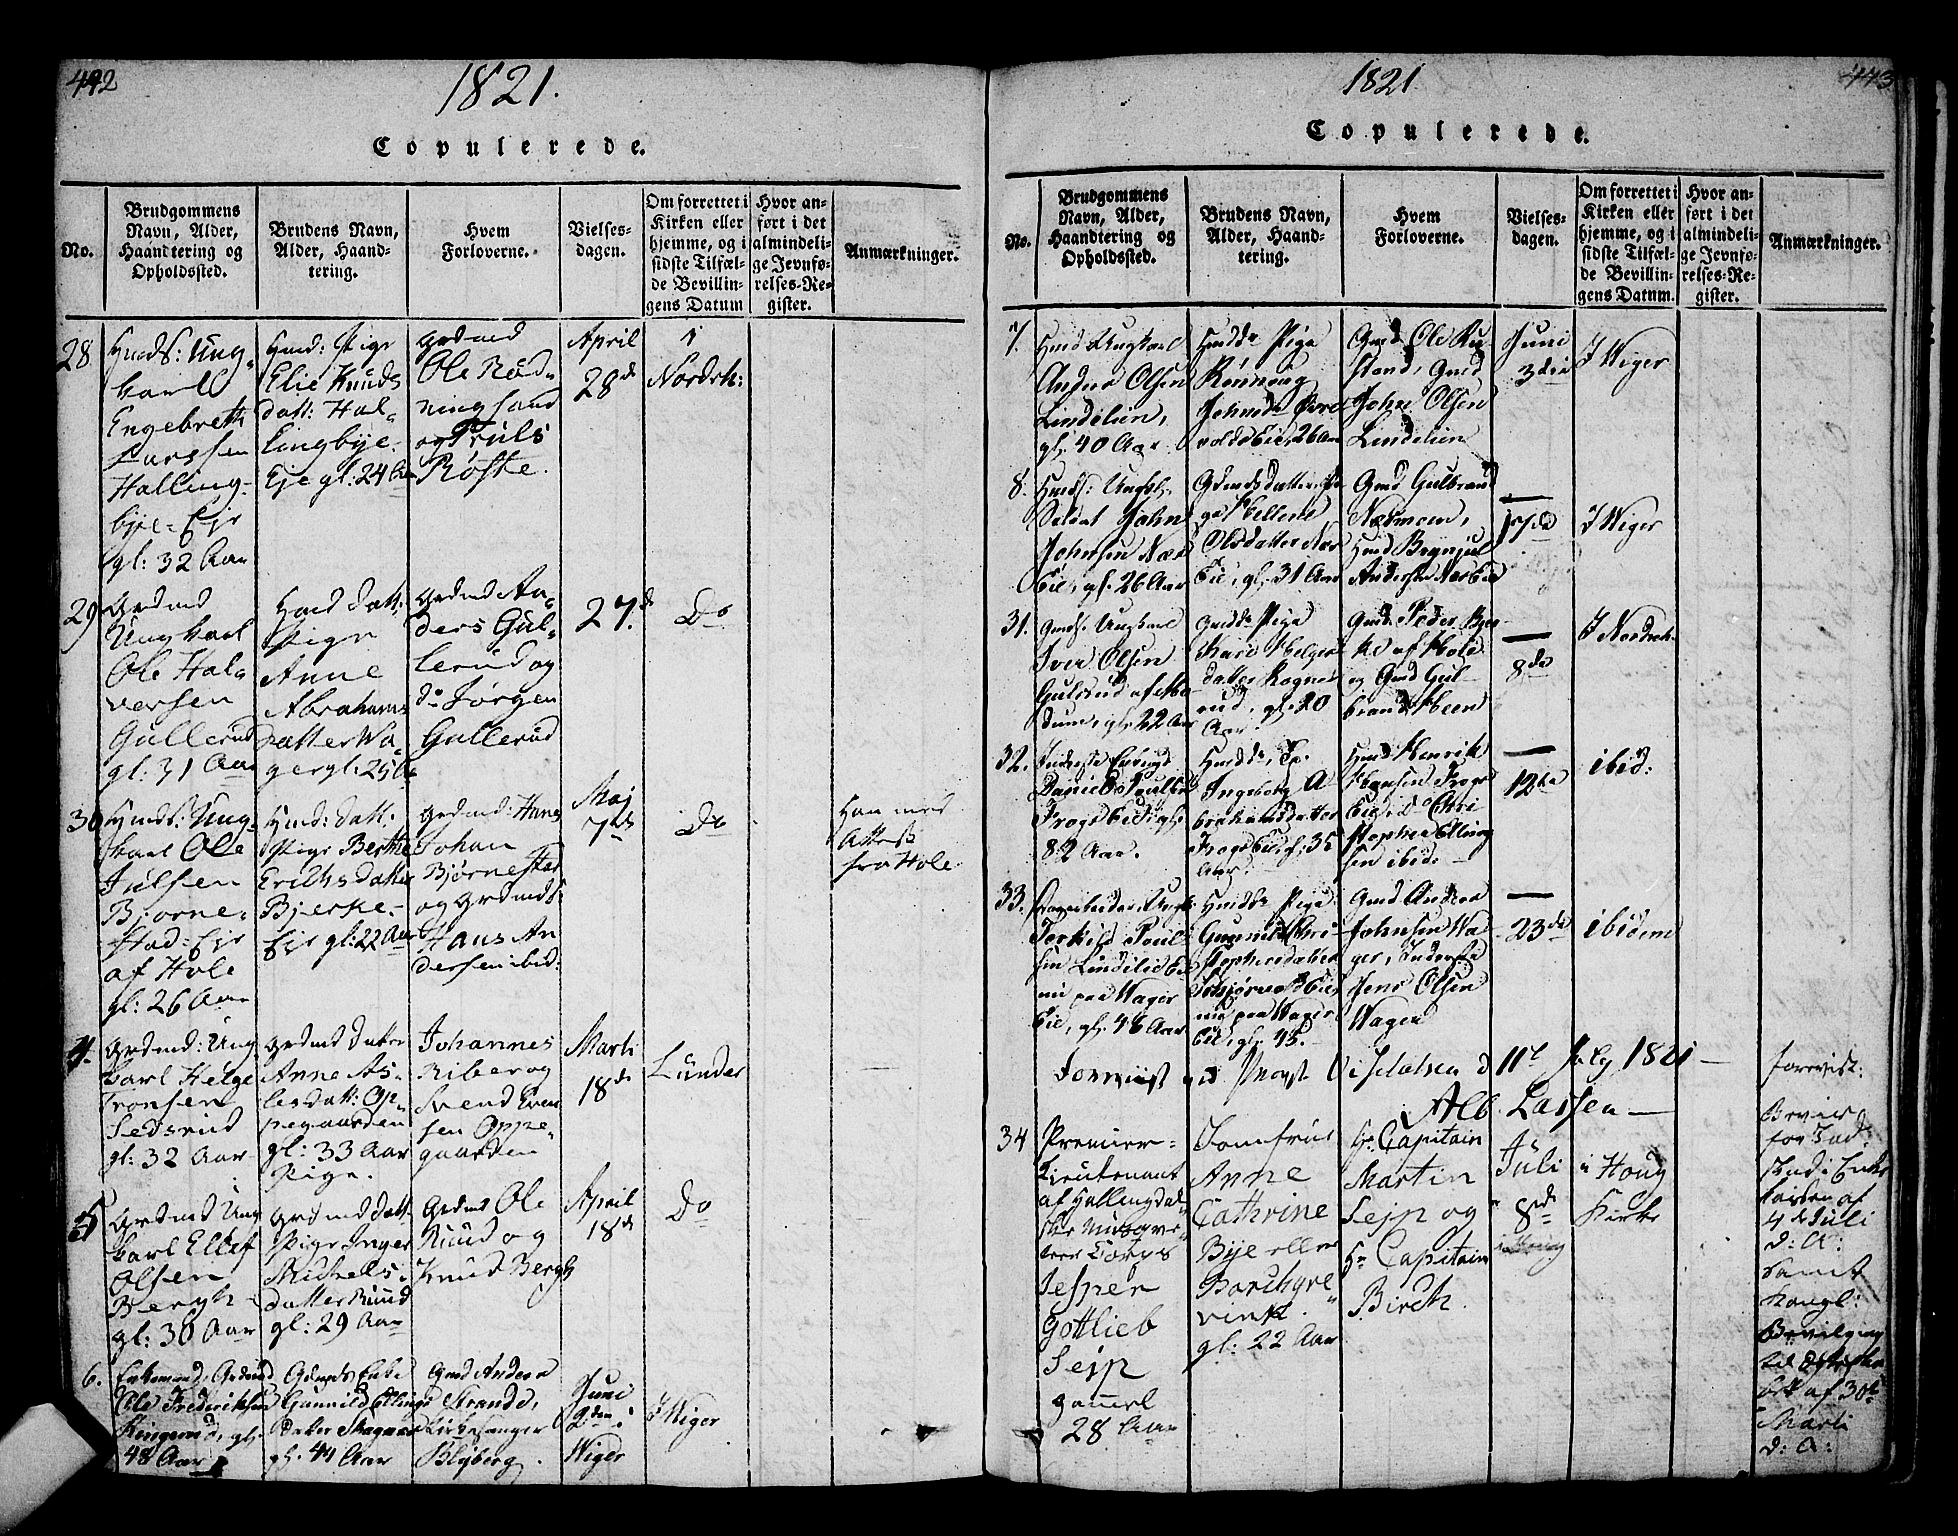 442
1821.
Copulerede.
No.
Brudgommens
Navn, Alder,
Haandtering og
Opholdssted.
Brudens Navn,
Alder, Haand-
tering.
Hvem
Forloverne.
Vielses-
dagen.
Om forrettet i
Kirken eller
hjemme, og i
sidste Tilfæl-
de Bevillin-
gens Datum
Hvor an-
ført i det
almindeli-
ge Jevnfø-
relses-Re-
gister.
Anmærkninger.
28
Hmds: Ung-
karl
Engebreth
Larssen
Halling-
bye-Eje
gl: 32 Aar
Hmd: Pige
Elie Knuds
datt: Hal-
lingbye-
Eje gl: 24 Aar
Grdmd
Ole Rød-
ningsand
og Truls
Røste.
April
28d
i
Nordrh:
29
Grdmd
Ungkarl
Ole Hal-
versen
Gullerud
gl: 31 Aar
Hmd datt:
Pige
Anne
Abrahams
Datter Wa-
ger gl: 25 Aar
Grdmd An-
ders Gul-
lerud og
do Jørgen
Gullerud
27.d
Do
30
Hmds: Ung-
karl Ole
Julsen
Bjørne-
stad-Eje
af Hole
gl: 26 Aar
Hmd: datt:
Pige Berthe
Erichsdatter
Bjerke-
Eje gl: 22 Aar
Grdmd: Hans
Johan
Bjørnestad
og Grdmds:
Hans An
dersen ibid:
Maj
7de
Do
Han med
Attest
fra Hole
4.
Grdmd: Ung
karl Helge
Tronsen
Sedsrud
gl: 32 Aar
Grdmd datter
Anne As-
lesdatt: Op-
pegaarden
gl: 33 Aar
Pige.
Johannes
Riber og
Svend Even
sen Oppe-
gaarden
Marti
18d
Lunder
5
Grdmd Ung
karl Ellef
Olsen
Bergh
gl: 30 Aar
Grdmd datt:
Pige Inger
Michels-
datter Ruud
gl: 29 Aar
Grdmd Ole
Ruud og
Knud Bergh
April
18d
Do
6.
Enkemand, Grdmd
Ole Frederiksen
Ringerud, gl.
48 Aar
Gdmds Enke
Gunnild Ellings
datter
gl. 44 Aar
Gmd Anders
Strande,
Kirkesanger
Blyberg.
Juni
2den i
Wiger
I Wiger
1821
443
Copulerede.
No.
Brudgommens
Navn, Alder,
Haandtering og
Opholdssted.
Brudens Navn,
Alder, Haand-
tering.
Hvem
Forloverne.
Vielses-
dagen.
Om forrettet i
Kirken eller
hjemme, og i
sidste Tilfæl-
de Bevillin-
gens Datum.
Hvor an-
ført i det
almindeli-
ge Jevnfø-
relses-Re-
gister.
Anmærkninger.
7.
Hmd Ungkarl
Anders Olsen
Lindelien,
gl. 40 Aar
Hmdds Pige
Rønnoug
Johnsd.
Eie, 26 Aar
Gmd Ole Ru-
stand, Gmd
John Olsen
Lindelien
Juni
3die
I Wiger
8.
Hmds: Ungk.
Soldat John
Johnsen Næs
Eie, gl. 26 Aar
Gdmds datter Pi
ge Hellene
Olsdatter Næs
Eie, gl. 31 Aar
Gmd Gulbrand
Næsmoen,
Hmd Brynjul
Andersen Næs Eie
17de
I Wiger
31.
Gmds. Ungkarl
Iver Olsen
Gulsrud af Mo
dum, gl. 22 Aar
Gmdds Pige
Kari Helges
datter Rogne
rud, gl. 20
Aar
Gmd Peder Bjer
ke af Hole
og Gmd Gul
brand Heen
8de
I Nordreh.
32.
Inderste Enkemd
Daniel Poulsen
Frogs Eie, gl.
82 Aar.
Hmdds, Ep.
Ingeborg A
brahamsdatter
Frogs Eie, gl. 35
Aar.
Hmd Henrik
Hansen Frogs
Eie, do Chri
stopher Elling
sen ibid.
12te
ibid:
33.
Ungk.
Torkild Poul-
sen Lindelid Eie
nu paa Wager
Eie, gl. 46 Aar
Hmdds Pige
Gunnild Chri
stophersdatter
Eie,
nu paa Wager
Eie, gl. 45.
Gmd Anders
Johnsen Wa
ger, Inderste
Jens Olsen
Wager
23de
ibidem
Foreviist ved d 11te July 1821
Alb. Lassen
34
Premier-
Lieutenant
af Hallingdal-
ske Musqve-
teer Corps
Jesper
Gottlieb
Sejp
gammel
28 Aar
Jomfrue
Anne
Cathrine
Bye eller
Borchgre
vink.
gl: 22 Aar
Hr Capitain
Martin
Sejp og
Hr Capitain
Birch.
Juli
8de
i Houg
Kirke
Forevist:
Bevis
for Ind-
skud i Enke
kassen af
4de Juli
d: A:
samt
Kongl:
Bevilgning
til
af 30te
Marti
d: A: